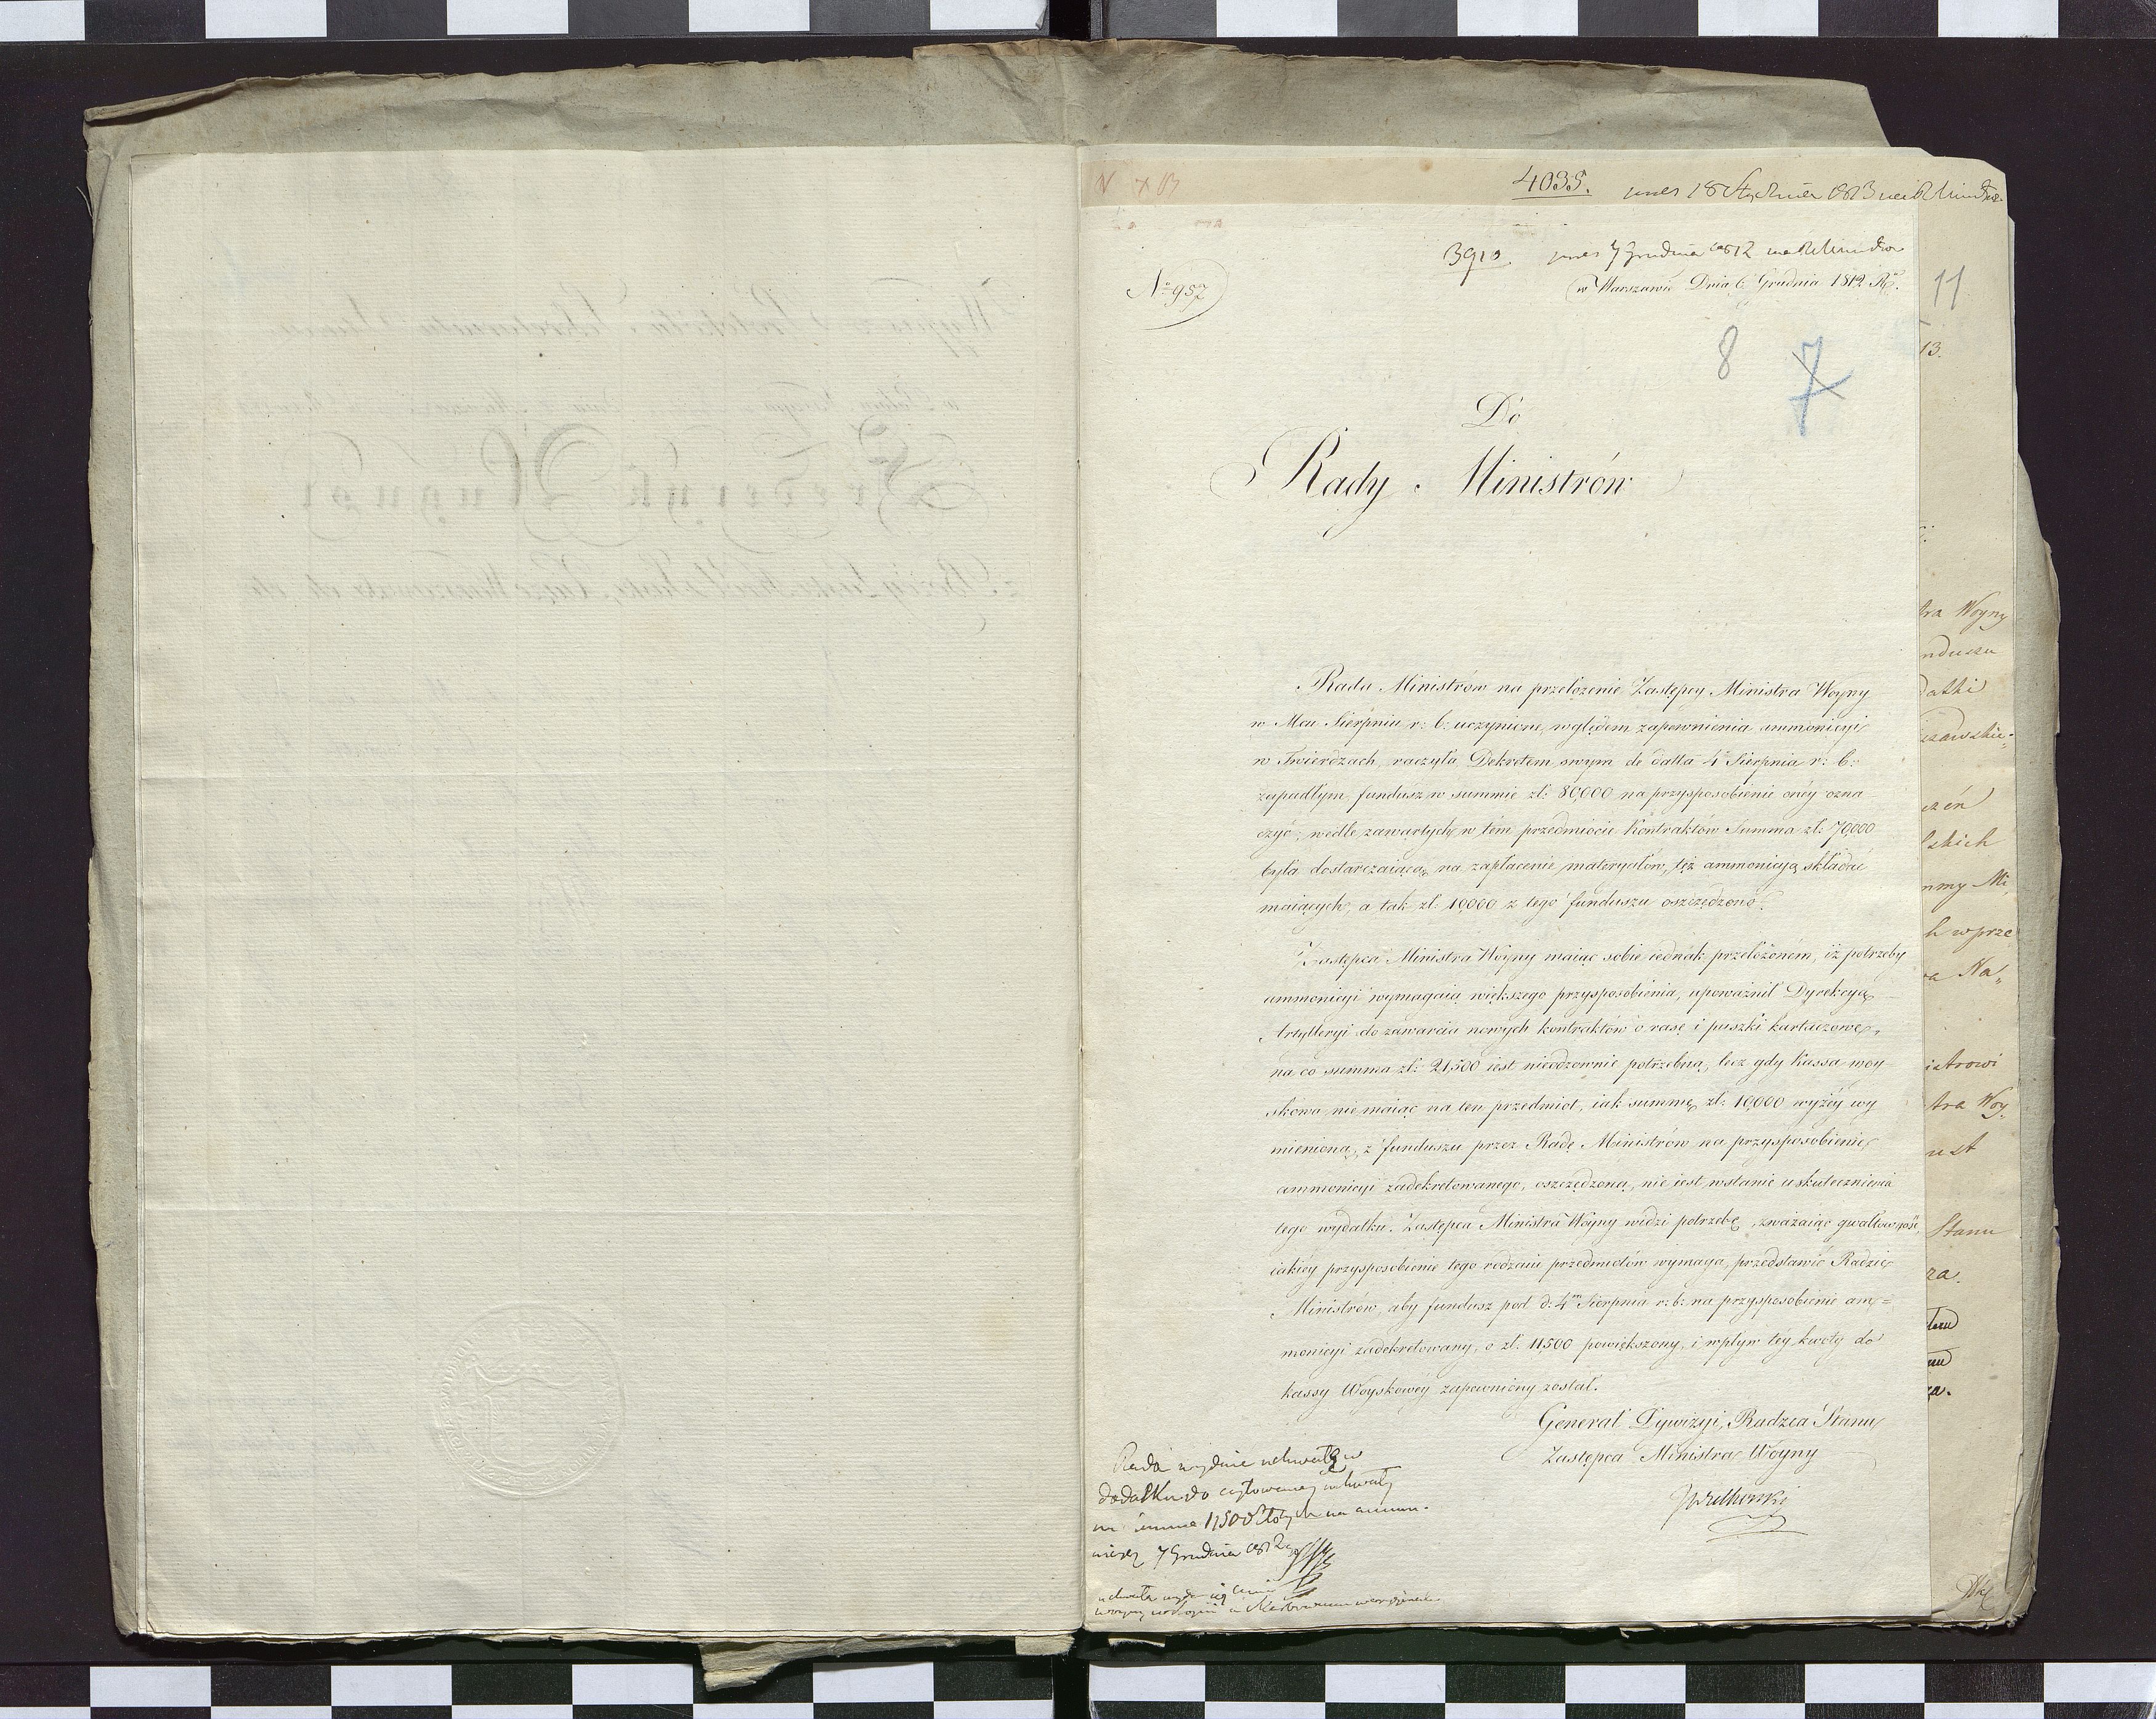 4035.
3910. 7 Grudnia 1812
No 957
w Warszawie Dnia 6 Grudnia 1812 R.
11
8 7
13.
Do
Rady Ministrów
Rada Ministrów na przełożenie Zastępcy Ministra Woyny
w Mcu Sierpniu r: b: uczynione, względem zapewnienia ammonicyi
w Twierdzach, raczyła Dekretem swym de datta 4 Sierpnia r: b:
zapadłym fundusz w summie zł: 80,000 na przysposobienie oney ozna
czyć; wedle zawartych w tém przedmiocie Kontraktów Summa zł: 70,000
była dostarczaiącą na zapłacenie materyałów, też ammonicyą składać
maiących, a tak zł: 10,000 z tego funduszu oszczędzono.
Zastępca Ministra Woyny maiąc sobie iednak przełożoném, iż potrzeby
ammonicyi wymagaią większego przysposobienia, upoważnił Dyrekcyą
Artylleryi do zawarcia nowych kontraktów o rasę i puszki kartaczowe,
na co summa zł: 21,500 iest nieodzownie potrzebną, lecz gdy Kassa woy
skowa nie maiąc na ten przedmiot, iak summę zł: 10,000 wyżéy wy
mienioną, z funduszu przez Radę Ministrów na przysposobienie
ammonicyi zadekretowanego, oszczędzoną, nie iest wstanie uskutecznienia
tego wydatku. Zastępca Ministra Woyny widzi potrzebę, zważaiąc gwałtowność
iakiéy przysposobienie tego rodzaiu przedmiotów wymaga, przedstawić Radzie
Ministrów, aby fundusz pod d: 4m Sierpnia r: b: na przysposobienie am=
monicyi zadekretowany, o zł: 11,500 powiększony, i wpływ tey kwoty do
kassy Woyskowéy zapewniony został.
Generał Dywizyi, Radzca Stanu
Zastępca Ministra Woyny
Rada wydaie uchwałę w
dodatku do cytowaney uchwały
na summe 11500 złotych na ammu-
nicyą 7 Grudnia 1812
tra Woyny
nduszu
datki
szawskie=
skich
mmy Mi
h wprze
ra Na
istrowi
tra Woy
Stanu
ra.